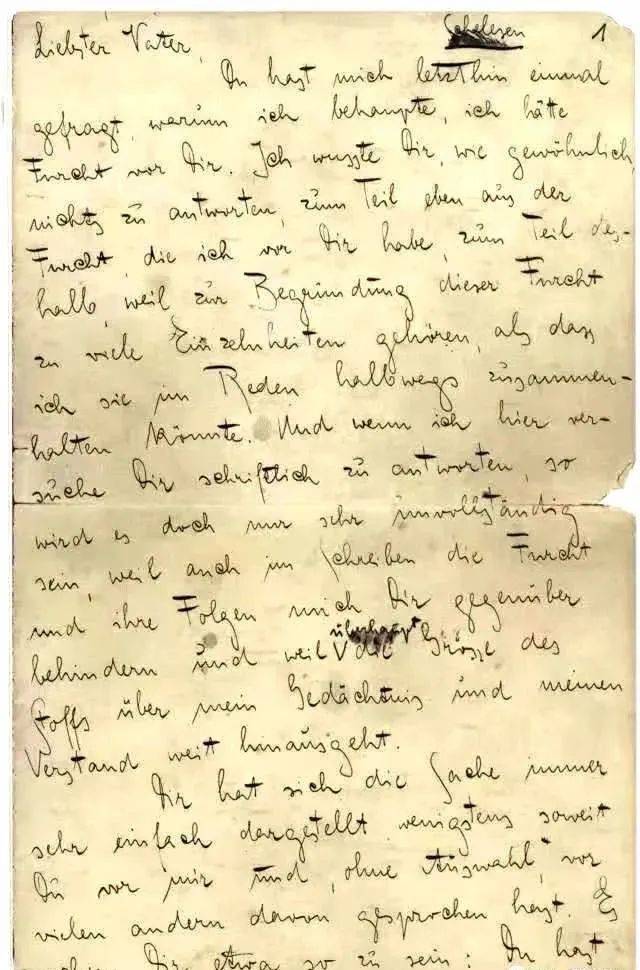 Schelesen 1
Liebster Vater,
Du hast mich letzthin einmal
gefragt, warum ich behaupte, ich hätte
Furcht vor Dir. Ich wusste Dir, wie gewöhnlich,
nichts zu antworten, zum Teil eben aus der
Furcht, die ich vor Dir habe, zum Teil des-
halb, weil zur Begründung dieser Furcht
zu viele Einzelnheiten gehören, als dass
ich sie im Reden halbwegs zusammen-
halten könnte. Und wenn ich hier ver-
suche Dir schriftlich zu antworten, so
wird es doch nur sehr unvollständig
sein, weil auch im Schreiben die Furcht
und ihre Folgen mich Dir gegenüber
überhaupt
behindern und weil die Grösse des
Stoffs über mein Gedächtnis und meinen
Verstand weit hinausgeht.
Dir hat sich die Sache immer
sehr einfach dargestellt, wenigstens soweit
Du vor mir und, ohne Auswahl, vor
vielen andern davon gesprochen hast. Es
Dir etwa so zu sein: Du hast